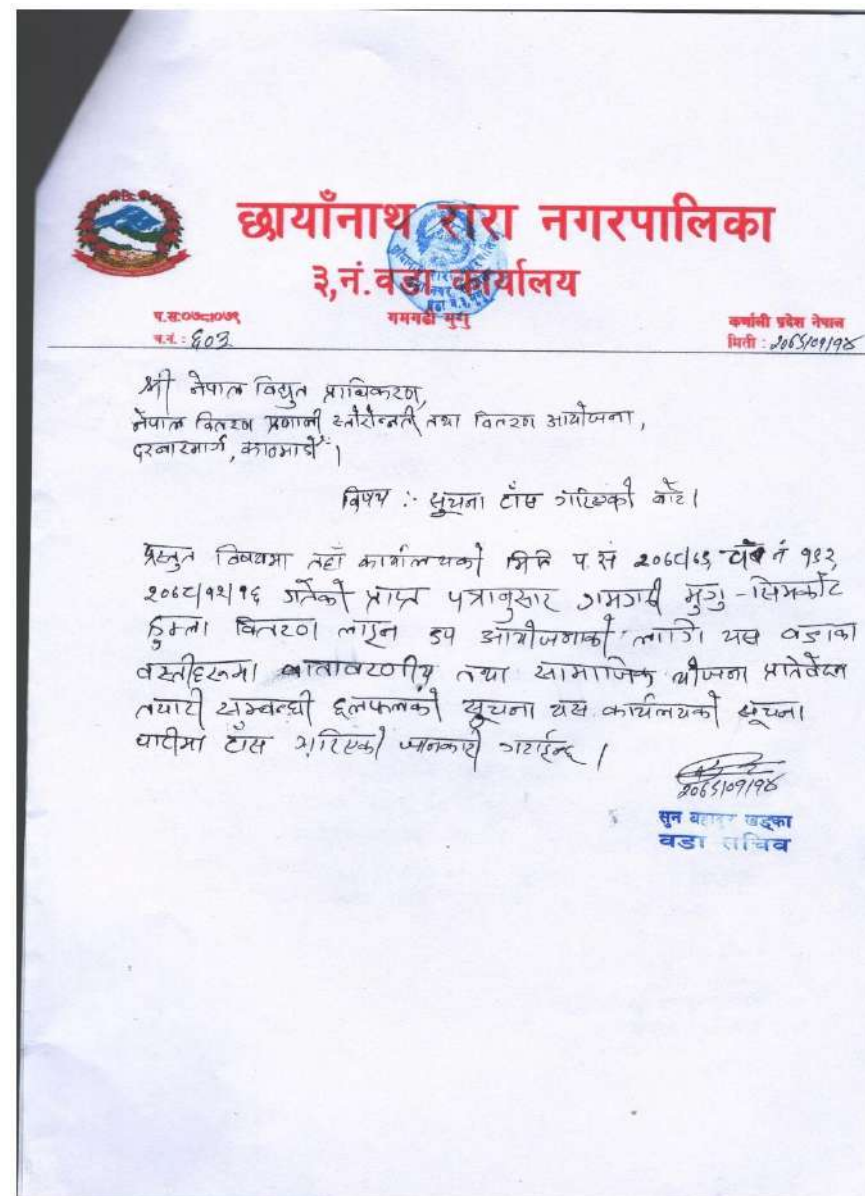 छायाँनाथ रारा नगरपालिका
३,नं.वडा कार्यालय
गमगढी मुगु
प.स:०७८।०७९
च.नं. : ६०३
कर्णाली प्रदेश नेपाल
मिती : २०७९/०१/१४
श्री नेपाल विद्युत प्राधिकरण,
नेपाल वितरण प्रणाली स्तरोन्नती तथा वितरण आयोजना,
दरबारमार्ग, काठमाडौं ।
विषय :- सुचना टाँस गरिएको बारे ।
प्रस्तुत विषयमा तहाँ कार्यालयको मिति प. सं २०७८/७९ च नं १९२
२०७८/१२/१६ गतेको प्राप्त पत्रानुसार गमगढी मुगु -सिमकोट
हुम्ला वितरण लाइन उप आयोजनाको लागि यस वडाका
वस्तीहरुमा वातावरणीय तथा सामाजिक योजना प्रतिवेदन
तयारी सम्बन्धी छलफलको सूचना यस कार्यलयको सूचना
पाटीमा टाँस गरिएको जानकारी गराईन्छ ।
२०७९/०१/१४
सुन बहादुर खड्का
वडा सचिव